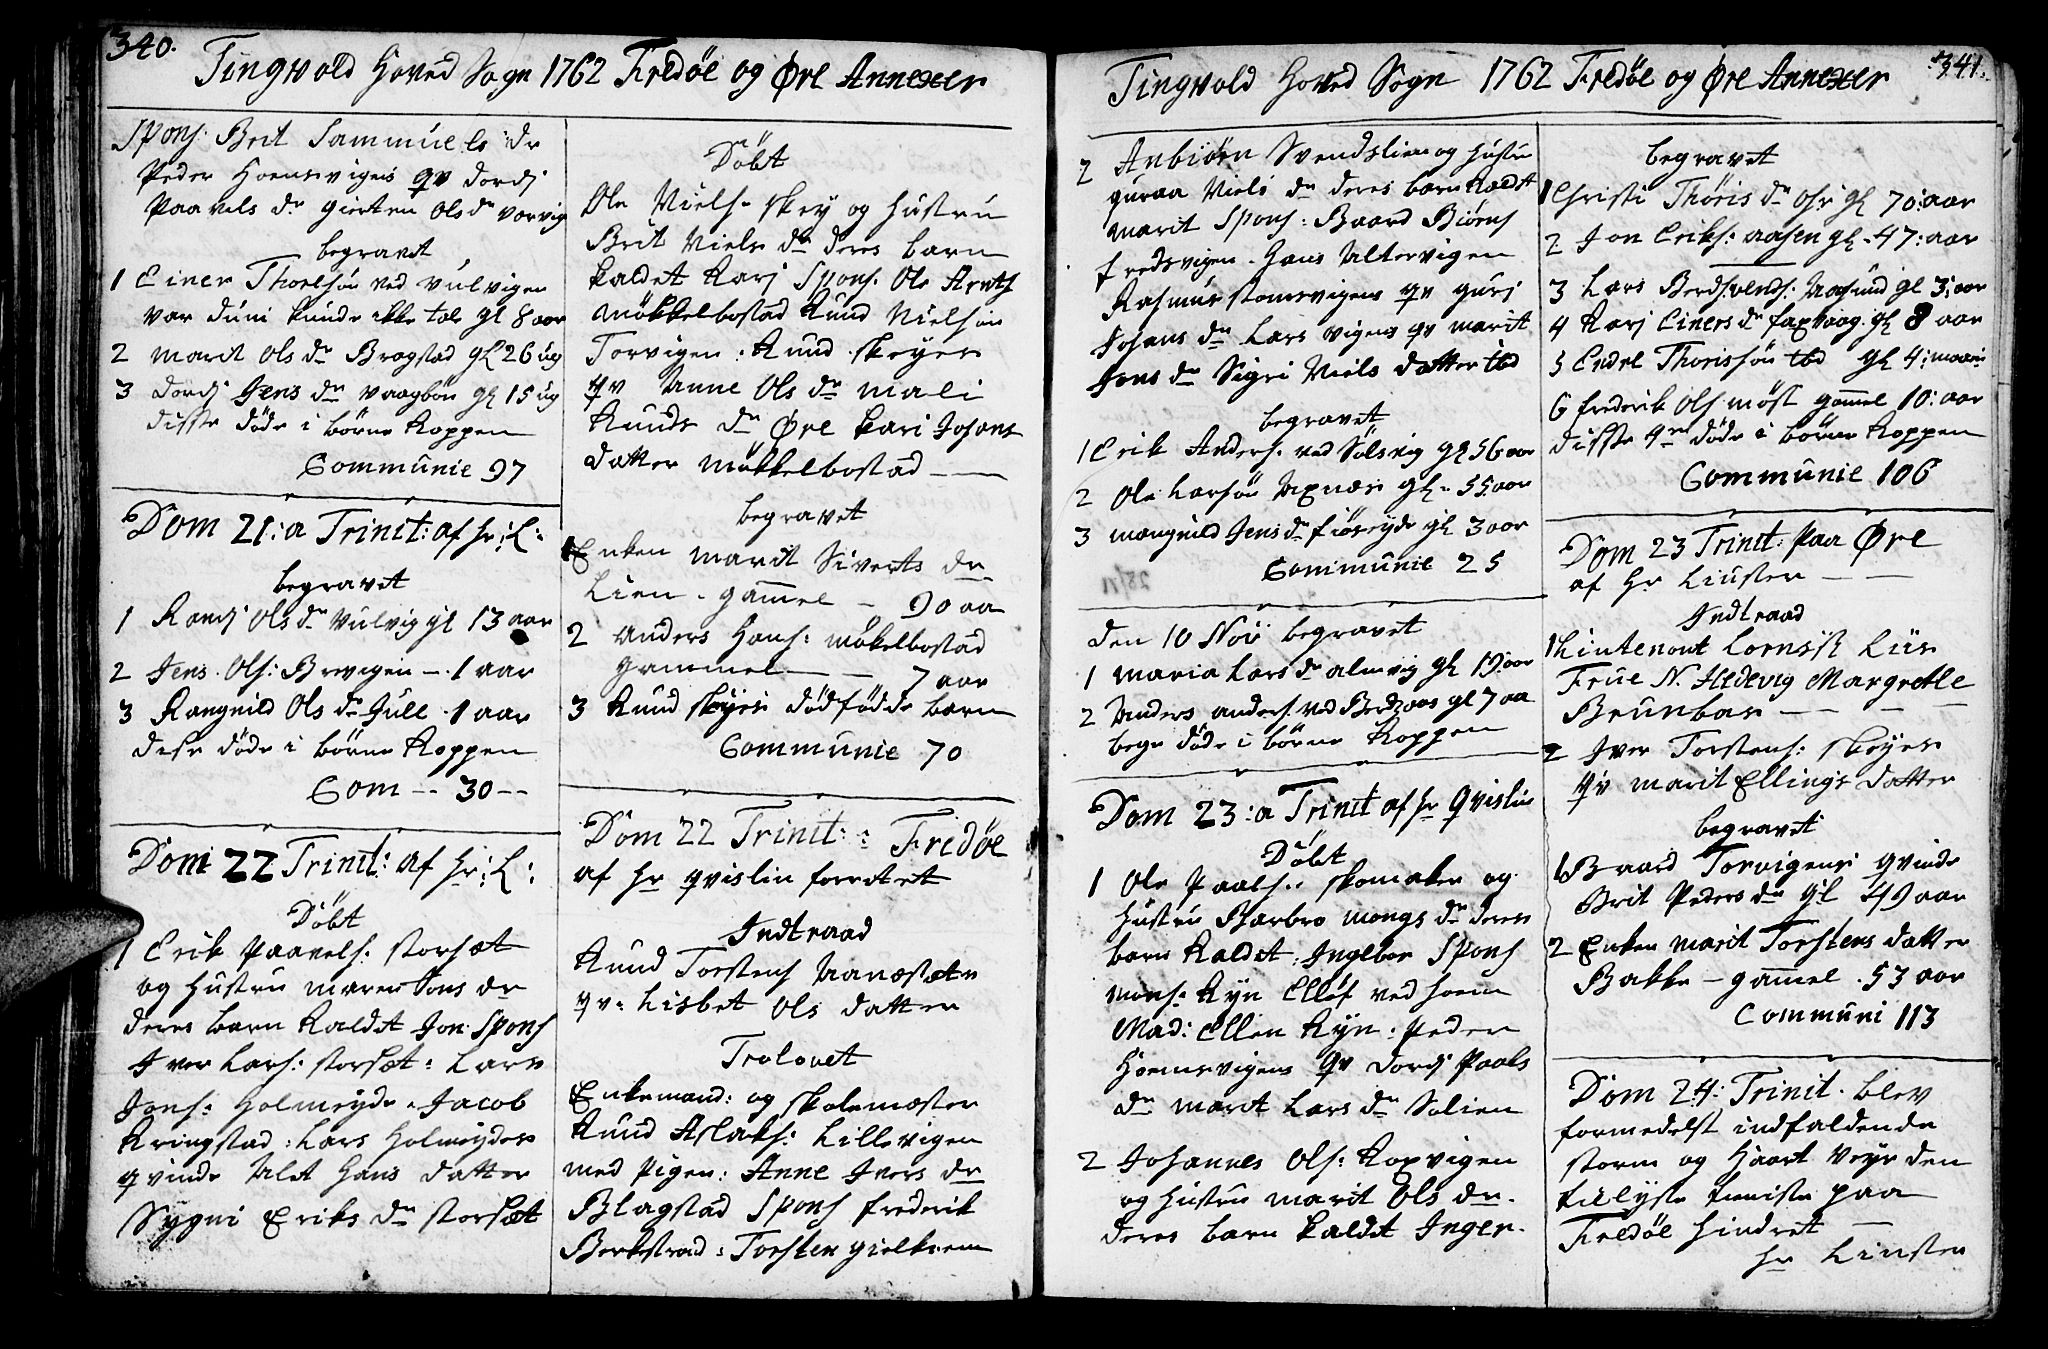 340.
Tingvold Hoved Sogn 1762 Fredøe og Øre Annexer
Spons: Brit Sammuels dr
Peder Hoensvigens qv Dordj
Paavels dr Gierten Ols dr Vorvig
begravet
1 Einer Thoelsøn ved Vulvigen
var dum kunde ikke tale gl 8 aar
2 Marit Ols dr Bragstad gl 26 ug
3 Dordj Jens dr Vaagbøn gl 15 ug
disse døde i børne Koppen
Communie 97
Dom 21: a Trinit: af hr: L:
begravet
1 Randj Ols dr Vulvig gl 13 aar
2 Jens Ols: Brevigen – 1 aar
3 Rangnild Ols dr Gull 1 aar
dise døde i børne Koppen
Com -- 30 --
Dom 22 Trinit: af hr: L:
Döbt
1 Erik Paavels: Storsæt
og Hustru Maren Jons dr
deres barn Kaldet Jon Spons
Iver Lars: Storsæt: Lars
Jons: Holmeyde Jacob
Kringstad: Lars Holmeydes
qvinde Alet Hans datter
Sygni Eriks dr Storsæt
Döbt
Ole Niels: Skey og Hustru
Brit Niels dr deres barn
kaldet Karj Spons. Ole Arnts
Møkkelbostad Knud Nielsøn
Torvigen: Knud Skeyes
qv Anne Ols dr Mali
Knuds dr Øre Kari Johans
datter Møkkelbostad
begravet
Enken Marit Siverts dr
Lien. gammel – 90 aa
2 Anders Hans: Møkelbostad
gammel – 7 aar
3 Knud Skeyes dødfødde barn
Communie 70
Dom 22 Trinit: : Fredøe
af hr qvislin forrettet
Indtraad
Knud Torstens Aanæstete
qv: Lisbet Ols datter
Trolovet
Enkemand: og Skolemæster
Knud Aslaks: Lillevigen
med Pigen: Anne Ivers dr
Blagstad Spons Frederik
Berkstrad: Torsten Gielksem
341.
Tingvold Hoved Sogn 1762 Fredøe og Øre Annexer
2 Anbiörn Svendslien og Hustru
Guraa Niels dr deres barn Kaldt
Marit Spons: Baard Biörns
Fredsvigen. Hans Altervigen
Rasmus Stomsvigens qv Gurj
Johans dr Lars Vigens qv Marit
Jons dr Sigri Niels datter ibd
begravet
1 Erik Anders: ved Solsvig gl 56 aar
2 Ole Larsøn Axnæs gl. 55 aar
3 Mangnild Jens dr Fiøseyde gl 3 aar
Communie 25
den 10 Nov begravet
1 Maria Lars dr Almvig gl 19 aar
2 Anders Anders: ved gl 7 aa
begr døde i børne Koppen
Dom 23: a Trinit af hr Qvislin
Döbt
1 Ole Paals: Skomaker og
Hustru Barbro Mongs dr deres
barn Kaldet: Ingebor Spons
Mons: Ryn Ellef ved Hoem
Mad: Ellen Ryn: Peder
Hoemsvigens Qv Dordj Paals
dr Marit Lars dr Solien
2 Johannes Ols: Roxvigen
og Hustru Marit Ols dr.
deres barn kaldt Inger.
begravet
1 Christi Thøris dr gl 70: aar
2 Jon Eriks: Aasen gl. 47: aar
3 Lars gl 3: aar
4 Karj Einers dr Faxvaag gl 8 aar
5 Endre Thorissøn ibd gl 4: maan
6 Frederik Ols Møst gammel 10: aar
disse 4re døde i børne Koppen
Communie 106
Dom 23 Trinit: paa Øre
af hr Linsten
Indtraad
1 Lieutenant Liis
Frue N. Hedevig Margrethe
Brunbas
2 Iver Torstens: Skeyes
Qv Marit Ellings datter
begravet
1 Baard Torvigens qvinde
Brit Peders dr gl 49 aar
2 Enken Marit Torstens datter
Bakke – gammel 53 aar
Communi 113
Dom 24: Trinit. blev
formedelst indfaldende
storm og haart Veyr den
tieniste paa
Fredøe hindret
hr Linsten